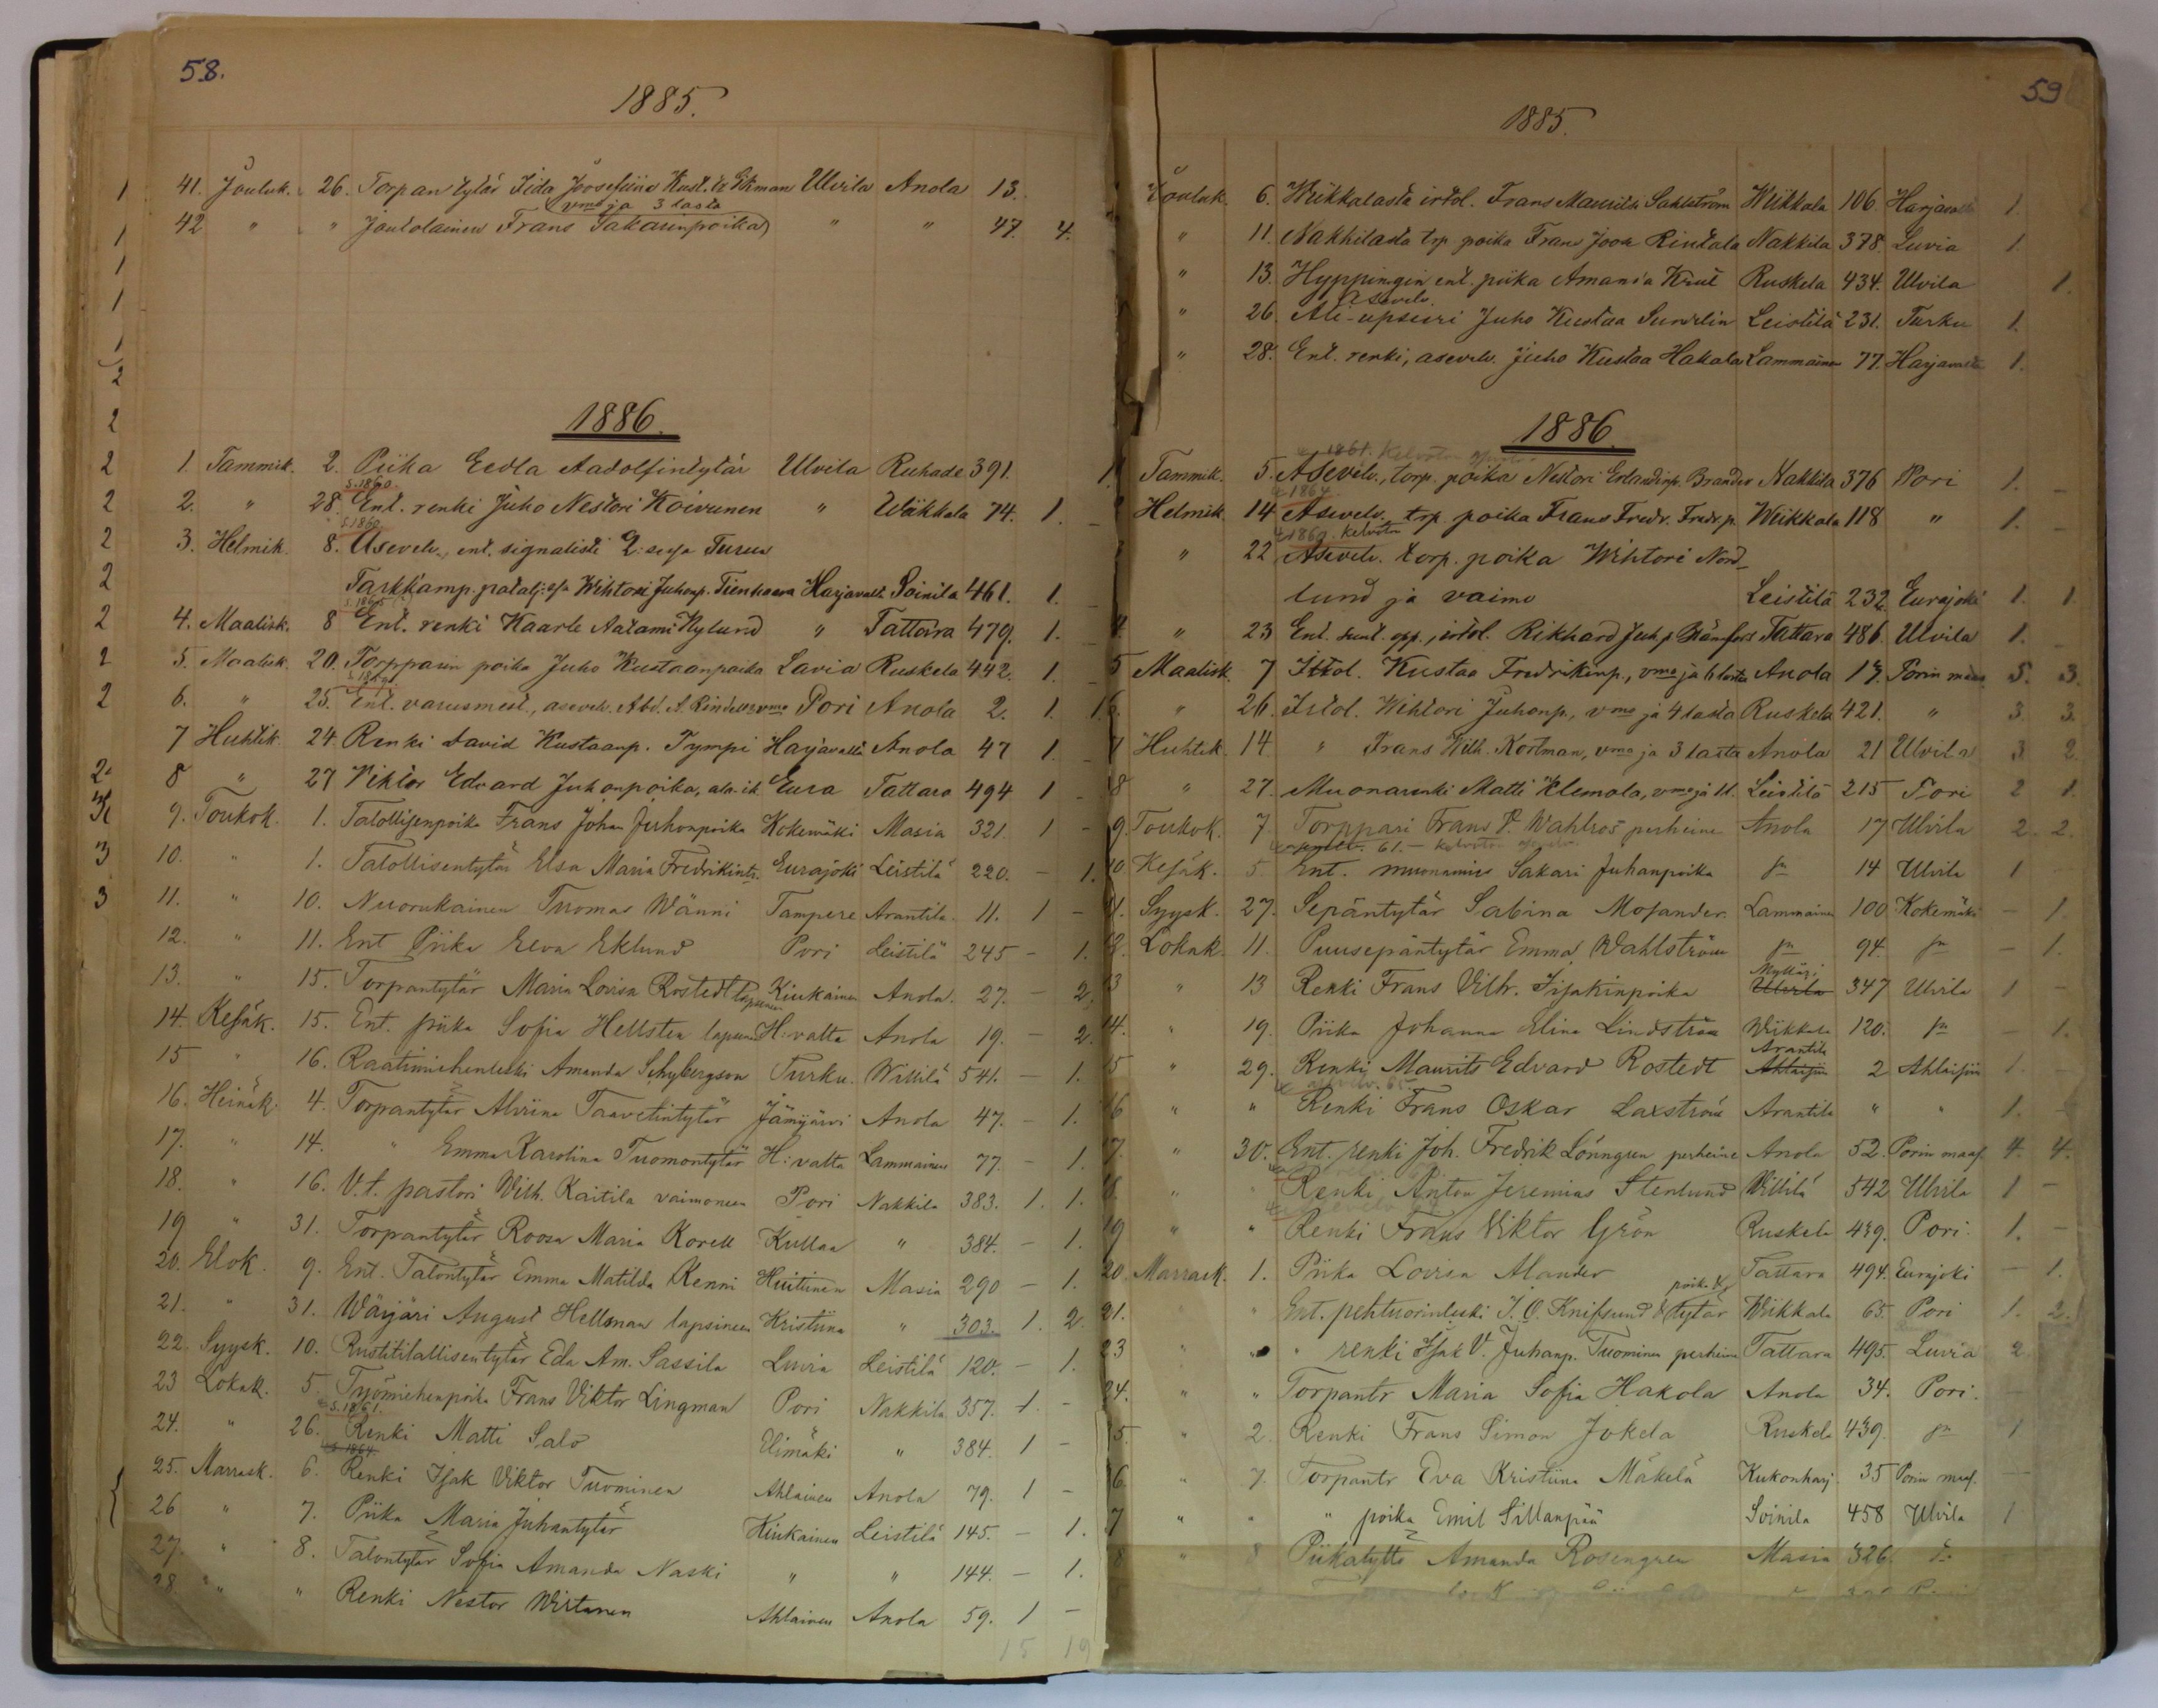 58.
1885.
41. Jouluk. 26. Torpan tytär Iida Joosefiina Kust. tr Ekman Ulvila Anola 13.
vmo ja 3 lasta
42 " " Joutolainen Frans Sakarinpoika " " 47. 4.
1886.
1. Tammik. 2. Piika Eedla Aadolfintytär Ulvila Ruhade 391. 1.
s. 1860.
2. " 28. Ent. renki Juho Nestori Koivunen " Wiikkala 74. 1. -
s. 1860.
3. Helmik. 8. Asevelv., ent. signalisti 2:sessa Turun
Tarkk'amp. patalj:ssa Wihtori Juhonp. Tienhaara Harjavalt. Soinila 461. 1. -
s. 1865
4. Maalisk. 8 Ent. renki Kaarle Aatami Nylund " Tattara 479. 1. -
5. Maalisk. 20. Torpparin poika Juho Kustaanpoika Lavia Ruskela 442. 1. -
6. " 25. Ent. varusmest., asevelv. Abd. A. Rindell & vmo Pori Anola 2. 1. 1.
7 Huhtik. 24. Renki David Kustaanp. Tympi Harjavalta Anola 47 1. -
8 " 27 Viktor Edvard Juhonpoika, ala-ik. Eura Tattara 494 1 -
9. Toukok. 1. Talollisenpoika Frans Johan Juhonpoika Kokemäki Masia 321. 1 -
10. " 1. Talollisentytär Elsa Maria Fredrikintr. Eurajoki Leistilä 220. - 1.
11. " 10. Nuorukainen Tuomas Wänni Tampere Arantila 11. 1 -
12. " 11. Ent Piika Eeva Eklund Pori Leistilä 245 - 1.
13. " 15. Torpantytär Maria Lovisa Rostedt lapsineen Kiukainen Anola. 27. - 2.
14. Kesäk. 15. Ent. piika Sofia Hellsten lapsineen H:valta Anola 19. - 2.
15 " 16. Raatimiehenleski Amanda Schybergson Turku. Willilä 541. - 1.
16. Heinäk. 4. Torpantytär Alviina Taavetintytär Jämijärvi Anola 47. - 1.
17. " 14. " Emma Karolina Tuomontytär H:valta Lammainen 77. - 1.
18. " 16. V.t. pastori Wilh. Kaitila vaimoneen Pori Nakkila 383. 1. 1.
19 " 31. Torpantytär Roosa Maria Korell Kullaa " 384. - 1.
20. Elok. 9. Ent. Talontytär Emma Matilda Kenni Huitinen Masia 290 - 1.
21. " 31. Wärjäri August Hellman lapsineen Kristiina " 303. 1. 2.
22. Syysk. 10. Rustitilallisentytär Eda Am. Sassila Luvia Leistilä 120. - 1.
23 Lokak. 5. Työmiehenpoika Frans Viktor Lingman Pori Nakkila 357. 1. -
s. 1861.
24. " 26. Renki Matti Salo Elimäki " 384. 1 -
s. 1864.
25. Marrask. 6. Renki Isak Viktor Tuominen Ahlainen Anola 79. 1 -
26 " 7. Piika Maria Juhantytär Kiukainen Leistilä 145. - 1.
27. " 8. Talontytär Sofia Amanda Naski " " 144. - 1.
28. " " Renki Nestor Wirtanen Ahlainen Anola 59. 1 -
15 19
59
1885.
Jouluk. 6. Wiikkalasta irtol. Frans Mauritz Sahlström Wiikkala 106. Harjavalta 1.
" 11. Nakkilasta trp. poika Frans Joos. Rintala Nakkila 378. Luvia 1.
" 13. Hyppingin ent. piika Amanda Krut Ruskela 434. Ulvila 1.
asevelv.
" 26. Ali-upseeri Juho Kustaa Sundelin Leistilä 231. Turku 1.
" 28. Ent. renki, asevelv. Juho Kustaa Hakala Lammainen 77. Harjavalta 1.
1886.
1861. Kelvoton
1 Tammik. 5. Asevelv., torp. poika Nestori Erlandinp. Brander Nakkila 376 Pori 1. -
1864
Helmik. 14 Asevelv. trp. poika Frans Fredr. Fredr.p. Wiikkala 118 " 1. -
kelvoton
" 22 Asevelv. torp. poika Wihtori Nord-
lund ja vaimo Leistilä 232. Eurajoki 1. 1.
" 23 Ent. sunt. opp., irtol. Rikhard Juh.p. Tattara 486. Ulvila 1. -
5 Maalisk. 7 Irtol. Kustaa Fredrikinp., vmo ja 6 lasta Anola 17. Porin maas. 5. 3.
6. " 26. Irtol. Wihtori Juhonp., vmo ja 4 lasta Ruskela 421. " 3. 3.
7 Huhtik. 14. " Frans Wilh. Kortman, vmo ja 3 lasta Anola 21 Ulvila 3 2.
8 " 27. Muonarenki Matti Klemola, vmo ja 1 l. Leistilä 215 Pori 2 1.
9. Toukok. 7. Torppari Frans V. Wahlros perheine Anola 17 Ulvila 2. 2.
61. - kelvoton
10. Kesäk. 5. Ent. muonamies Sakari Juhanpoika sn 14 Ulvila 1
11. Syysk. 27. Sepäntytär Sabina Mosander Lammainen 100. Kokemäki - 1.
12. Lokak. 11. Puusepäntytär Emma Wahlström sn 94. sn - 1.
Mylläri
13 " 13 Renki Frans Vilh. Iisakinpoika Ulvila 347 Ulvila 1 -
14. " 19. Piika Johanna Elina Lindström Wiikkala 120. sn - 1.
Arantila
15 " 29. Renki Maurits Edvard Rostedt Ahlaisiin 2 Ahlaisiin 1.
asevelv. 65.
16 " " Renki Frans Oskar Laxström Arantila " " 1. -
17. " 30. Ent. renki Joh. Fredrik Lönngren perheine Anola 52. Porin maas. 4. 4.
18. " Renki Anton Jeremias Stenlund Willilä 542 Ulvila 1 -
19 " " Renki Frans Viktor Grön Ruskela 439. Pori. 1. -
20. Marrask. 1. Piika Lovisa Alander Tattara 494. Eurajoki - 1.
poika &
21. " Ent. pehtuorinleski J. O. Knifsund & tytär Wiikkala 65. Pori 1. 2.
23 " " " renki Isak V. Juhanp. Tuominen perheine Tattara 495. Luvia 2
24. " " Torpantr Maria Sofia Hakola Anola 34. Pori.
5. " 2. Renki Frans Simon Jokela Ruskela 439. sn 1
6. " 7. Torpantr Eva Kristiina Mäkelä Kukonharj. 35 Porin maas. -
7 " " " poika Emil Sillanpää Soinila 458 Ulvila 1
8 " 8 Piikatyttö Amanda Rosengren Masia 326.